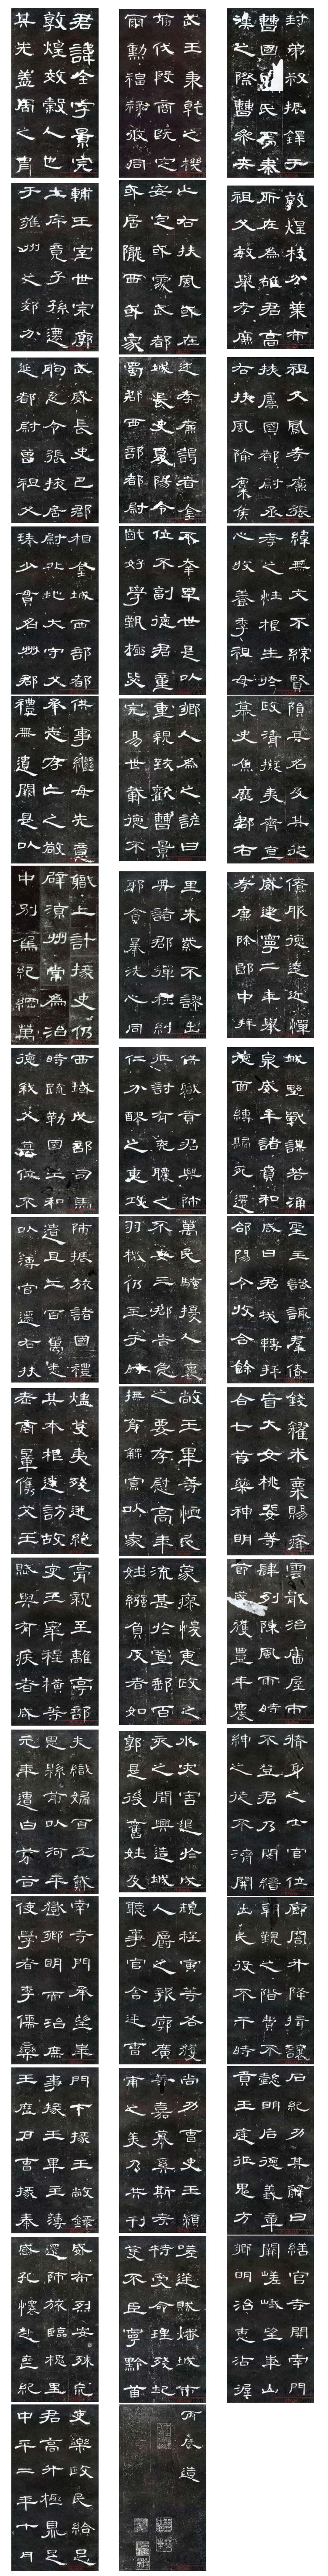 君諱全字景完
敦煌效榖人也
其先蓋周之冑
武王秉乾之機
翦伐殷商既定
爾勳福祿攸同
封弟叔振鐸于
曹國氏焉秦
漢之際曹參夾
輔王室世宗廓
土斥竟子孫遷
于雍州之郊分
止右扶風或在
安定或處武都
或居隴西或家
敦煌枝分葉布
所在為雄君高
祖父敏舉孝廉
武威長史巴郡
朐忍令張掖居
延都尉曾祖父
述孝廉謁者金
城長史夏陽令
蜀郡西部都尉
祖父鳳孝廉張
掖屬國都尉丞
右扶風隃麋侯
相金城西部都
尉北地大守父
琫少貫名州郡
不幸早世是以
位不副德君童
齔好學甄極毖
緯無文不綜賢
孝之性根生於
心收養季祖母
供事繼母先意
承志存亡之敬
禮無遺闕是以
鄉人為之諺曰
重親致歡曹景
完易世載德不
隕其名及其從
政清擬夷齊直
慕史魚歷郡右
職上計掾史仍
辟涼州常為治
中別駕紀綱萬
里朱紫不謬出
典諸郡彈枉糾
邪貪暴洗心同
僚服德遠近憚
威建寧二年舉
孝廉除郎中拜
西域戊部司馬
時疏勒國王和
德弒父篡位不
供職貢君興師
征討有兗膿之
仁分醪之惠攻
城野戰謀若涌
泉威牟諸賁和
德面縛歸死還
師振旅諸國禮
遺且二百萬悉
以薄官遷右扶
萬民騷擾人裹
不安三郡告急
羽檄仍至于時
聖主諮諏群僚
咸曰君哉轉拜
郃陽令收合餘
燼芟夷殘迸絕
其本根遂訪故
老商量儁艾王
敞王畢等恤民
之要存慰高年
撫育鰥寡以家
錢糴米粟賜癃
盲大女桃婓等
合七首藥神明
膏親至離亭部
吏王宰程橫等
賦與有疾者咸
蒙瘳悛惠政之
流甚於置郵百
姓繈負反者如
雲戢治廧屋市
肆列陳風雨時
節歲獲豐年農
夫織婦百工戴
恩縣前以河平
元年遭白茅谷
水災害退於戍
亥之間興造城
郭是後舊姓及
脩身之士官位
不登君乃閔縉
紳之徒不濟開
南寺門承望華
嶽鄉明而治庶
使學者李儒欒
規程寅等各獲
人爵之報廓廣
聽事官舍廷曹
廊閣升降揖讓
朝覲之階費不
出民役不干時
門下掾王敞錄
事掾王畢主薄
王歷戶曹掾秦
尚功曹史王顓
等嘉慕奚斯考
甫之美乃共刊
石紀功其辭曰
懿明后德義章
貢王庭征鬼方
威布烈安殊荒
還師旅臨槐里
感孔懷赴喪紀
嗟逆賊燔城市
特受命理殘圮
芟不臣寧黔首
繕官寺開南門
闕嵯峨望華山
鄉明治惠沾渥
吏樂政民給足
君高升極鼎足
中平二年十月
丙辰造